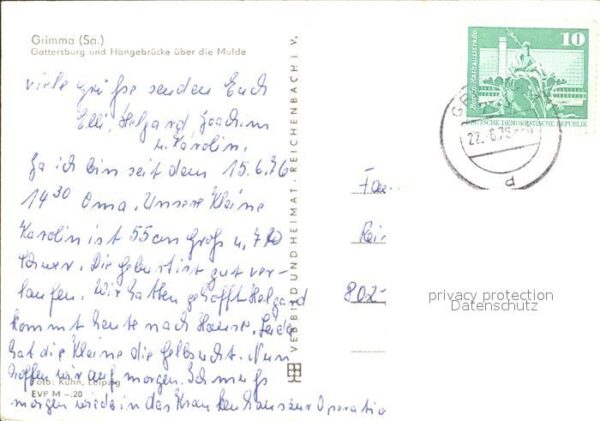 Grimma (Sa.)
Gattersburg und Hängebrücke über die Mulde
viele grüße senden Euch
Elli, Helgard, Joachim
u. Karolin.
Ja ich bin seit dem 15.6.76
14 30 Oma. Unsere Kleine
Karolin ist 55 cm groß u. 7
schwer. Die Geburt ist gut ver-
laufen. Wir hatten gehofft Helgard
kommt heute nach Hause. Leider
hat die Kleine die Gelbsucht. Nun
hoffen wir auf morgen. Ich muß
morgen wieder in das Krankenhaus zur Operatio
Foto: Kühn, Leipzig
EVP M –.20
VEB BILD UND HEIMAT · REICHENBACH I. V.
10
DEUTSCHE DEMOKRATISCHE REPUBLIK
22. 6.76
P
Fam
802
privacy protection
Datenschutz